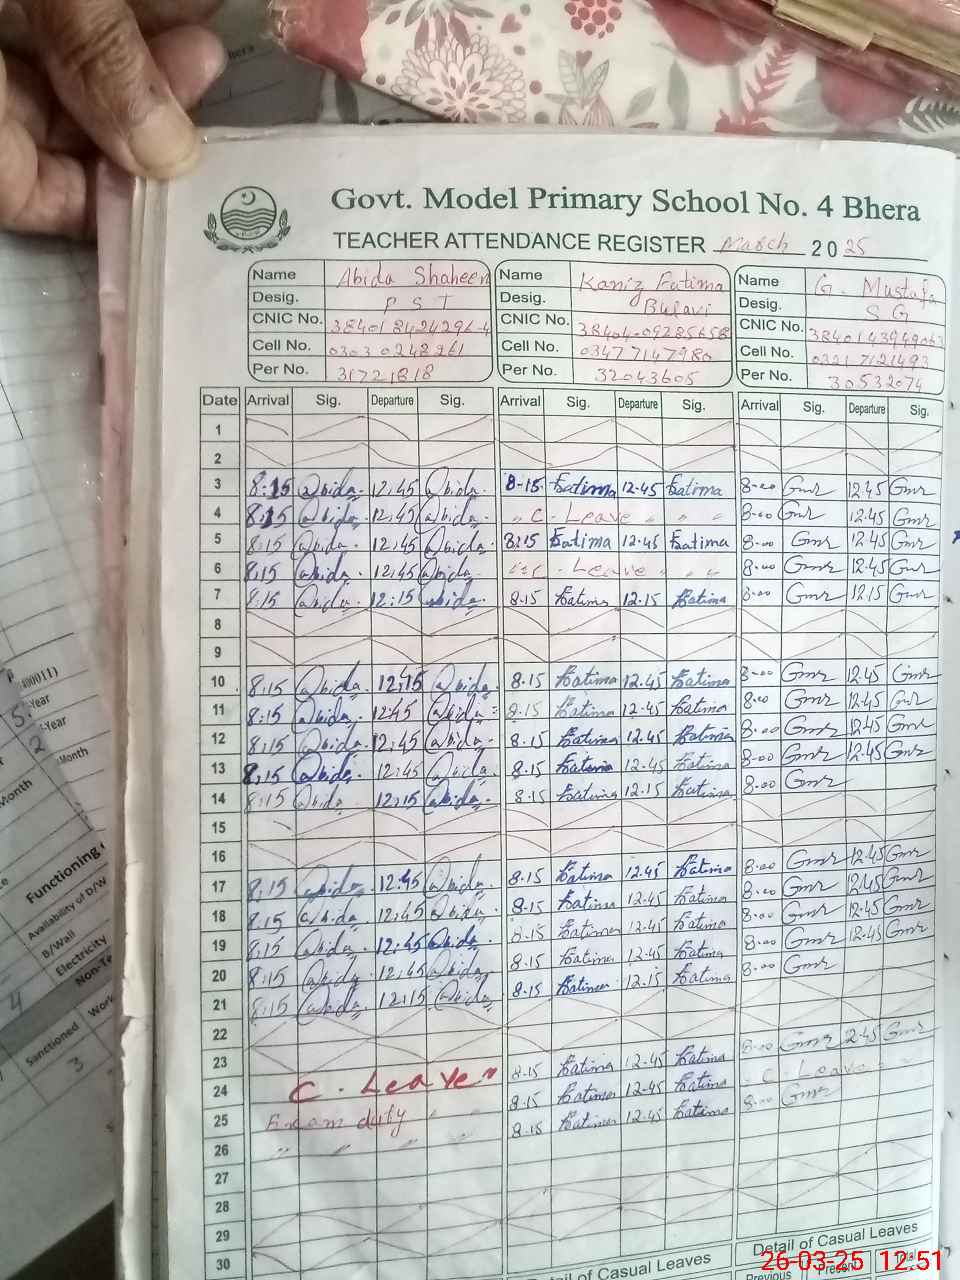 Govt. Model Primary School No. 4 Bhera
TEACHER ATTENDANCE REGISTER March 2025
Name Abida Shaheen Name Kaniz Fatima Name G. Mustafa
Desig. P S T Desig. Bulavi Desig. S G
CNIC No. CNIC No. CNIC No.
Cell No. Cell No. 03477147980 Cell No. 03217121493
Per No. 31721818 Per No. 32043605 Per No. 30532074
Date Arrival Sig. Departure Sig. Arrival Sig. Departure Sig. Arrival Sig. Departure Sig.
1
2
3 8:15 Abida 12:45 Abida 8-15 Fatima 12-45 Fatima 8-00 Gmr 12.45 Gmr
4 8:15 Abida 12:45 Abida " C - Leave " " " 8-00 Gmr 12.45 Gmr
5 8:15 Abida 12:45 Abida 8:15 Fatima 12-45 Fatima 8-00 Gmr 12.45 Gmr
6 8:15 Abida 12:45 Abida " C - Leave " " " 8-00 Gmr 12.45 Gmr
7 8:15 Abida 12:15 Abida 8-15 Fatima 12-15 Fatima 8-00 Gmr 12.15 Gmr
8
9
10 8:15 Abida 12:15 Abida 8-15 Fatima 12-45 Fatima 8-00 Gmr 12.45 Gmr
11 8:15 Abida 12:45 Abida 8-15 Fatima 12-45 Fatima 8-00 Gmr 12.45 Gmr
12 8:15 Abida 12:45 Abida 8-15 Fatima 12.45 Fatima 8-00 Gmr 12.45 Gmr
13 8:15 Abida 12:45 Abida 8-15 Fatima 12-45 Fatima 8-00 Gmr 12.45 Gmr
14 8:15 Abida 12:15 Abida 8-15 Fatima 12-15 Fatima 8-00 Gmr
15
16
17 8:15 Abida 12:45 Abida 8-15 Fatima 12.45 Fatima 8-00 Gmr 12.45 Gmr
18 8:15 Abida 12:45 Abida 8-15 Fatima 12-45 Fatima 8-00 Gmr 12.45 Gmr
19 8:15 Abida 12:45 Abida 8-15 Fatima 12-45 Fatima 8-00 Gmr 12-45 Gmr
20 8:15 Abida 12:45 Abida 8-15 Fatima 12-45 Fatima 8-00 Gmr 12-45 Gmr
21 8:15 Abida 12:15 Abida 8-15 Fatima 12-15 Fatima 8-00 Gmr
22
23
24 C - Leave " 8-15 Fatima 12-45 Fatima 8-00 Gmr 12.45 Gmr
25 Exam duty " " 8-15 Fatima 12-45 Fatima C - Leave
26 " " " " 8-15 Fatima 12-45 Fatima 8-00 Gmr
27
28
29
30
Detail of Casual Leaves
Detail of Casual Leaves
Previous Present Total
26-03-25 12:51
-Year
-Year
Month
Month
Functioning
Availability of D/W
B/Wall
Electricity
4
Sanctioned
3